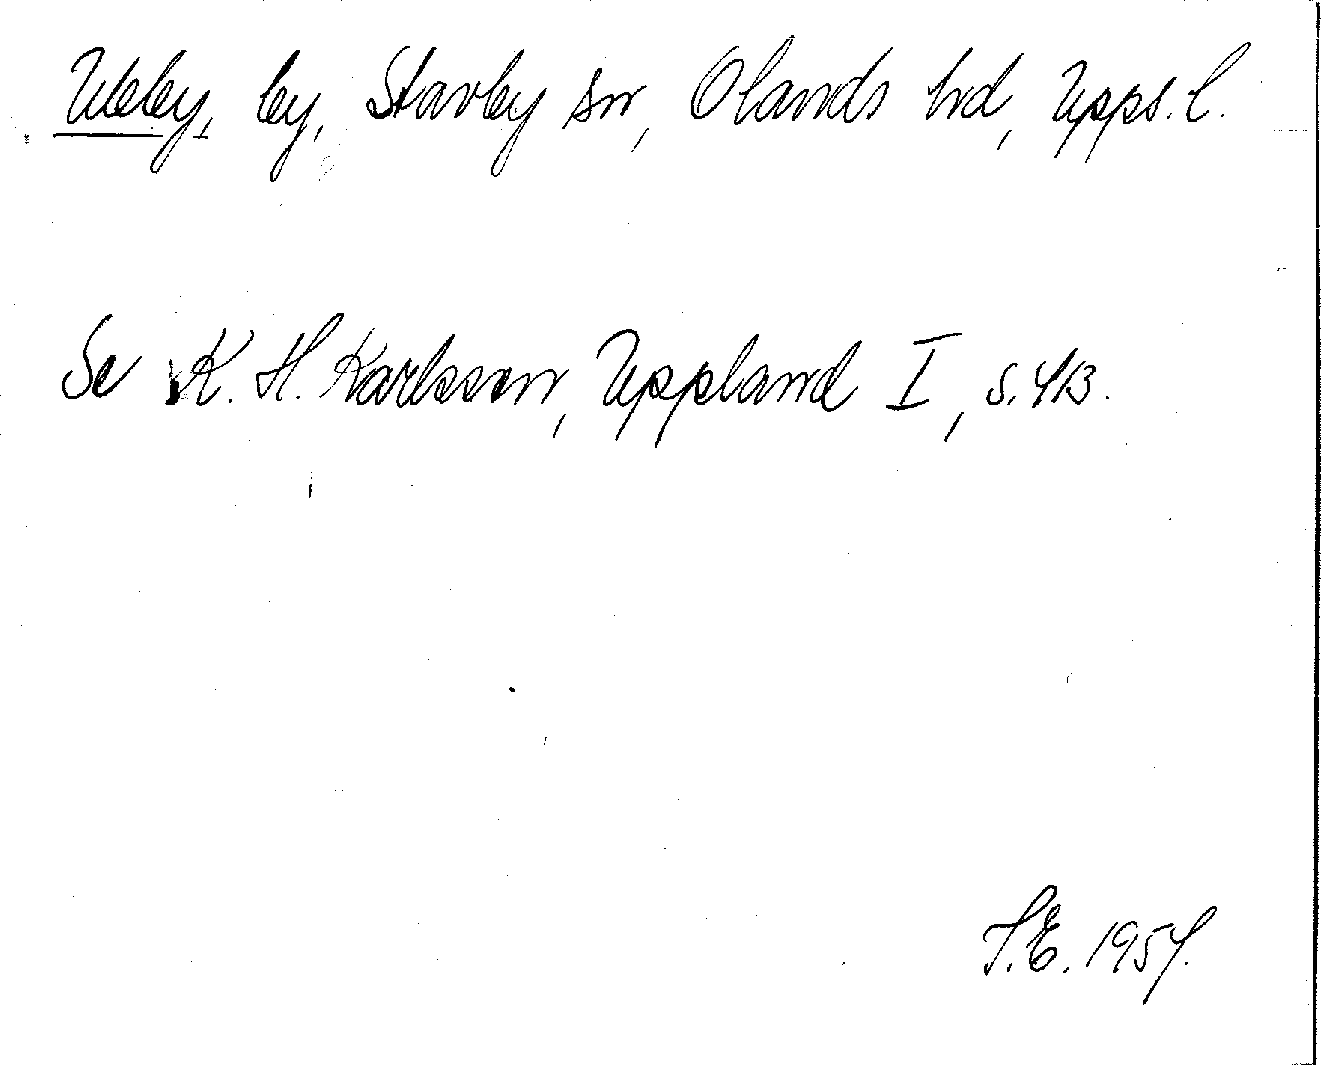 Ubby, by, Stavby sn, Olands hd, Upps. l.
Se K. H. Karlsson, Uppland I, s. 413.
S.E. 1954.